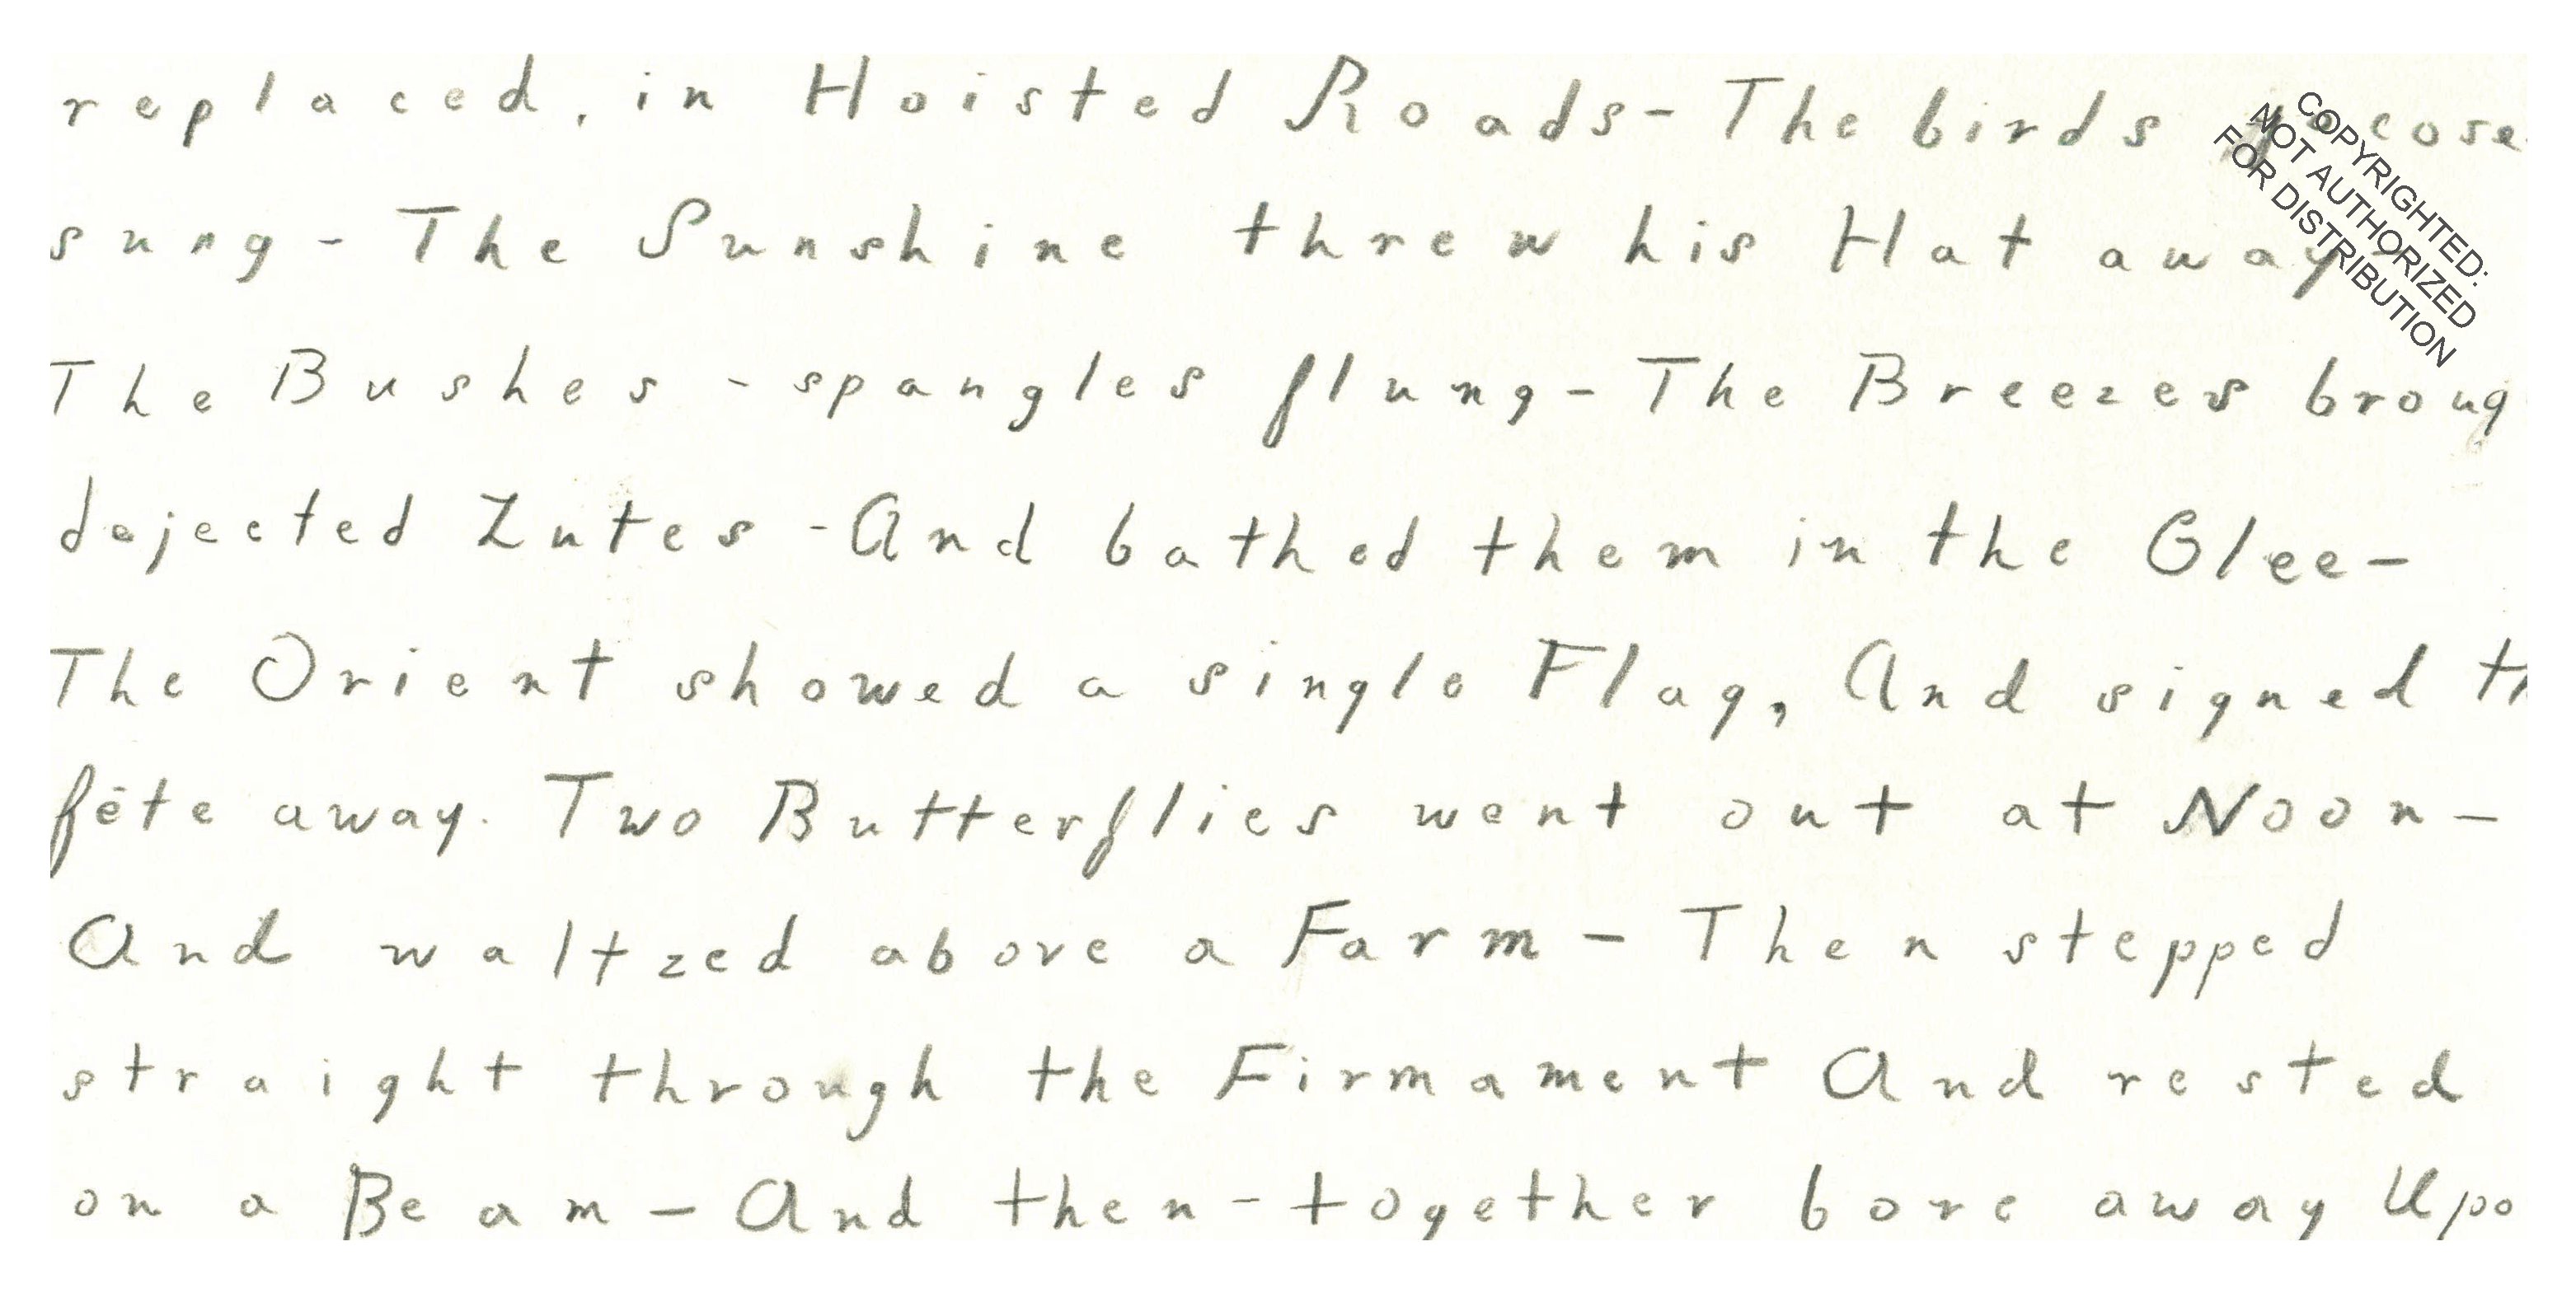 replaced, in Hoisted Roads- The birds jocose
sung - The Sunshine threw his Hat away
The Bushes - spangles flung - The Breezes broug
dejected Lutes - And bathed them in the Glee-
The Orient showed a single Flag, And signed th
fête away. Two Butterflies went out at Noon-
And waltzed above a Farm - Then stepped
straight through the Firmament And rested
on a Beam - And then - together bore away Upo
COPYRIGHTED:
NOT AUTHORIZED
FOR DISTRIBUTION